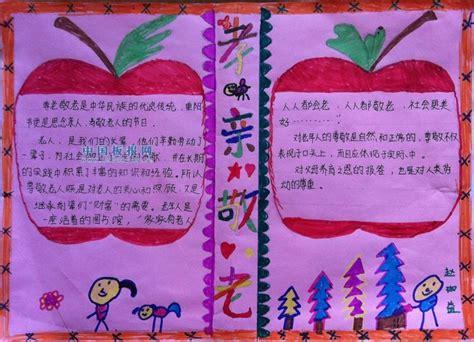 尊老敬老是中华民族的优良传统，重阳
节便是思念亲人、尊敬老人的节日。
老人，是我们的长辈，他们辛勤劳动了
一辈子，为社会，并在长期
的实践中积累了丰富的知识和经验。所以
尊敬老人既是对老人的关心和照顾，又是
继承前辈们"财富"的需要。老年人是
一座活着的图书馆，"家家有老人
中国板报网
孝亲敬老
人人都会老，人人都敬老，社会更美
好……
对老年人的尊敬是自然和正常的，尊敬不仅
表现于口头上，而且应体现于实际中。
对父母养育之恩的报答，也是对人类劳
动的尊重。
赵